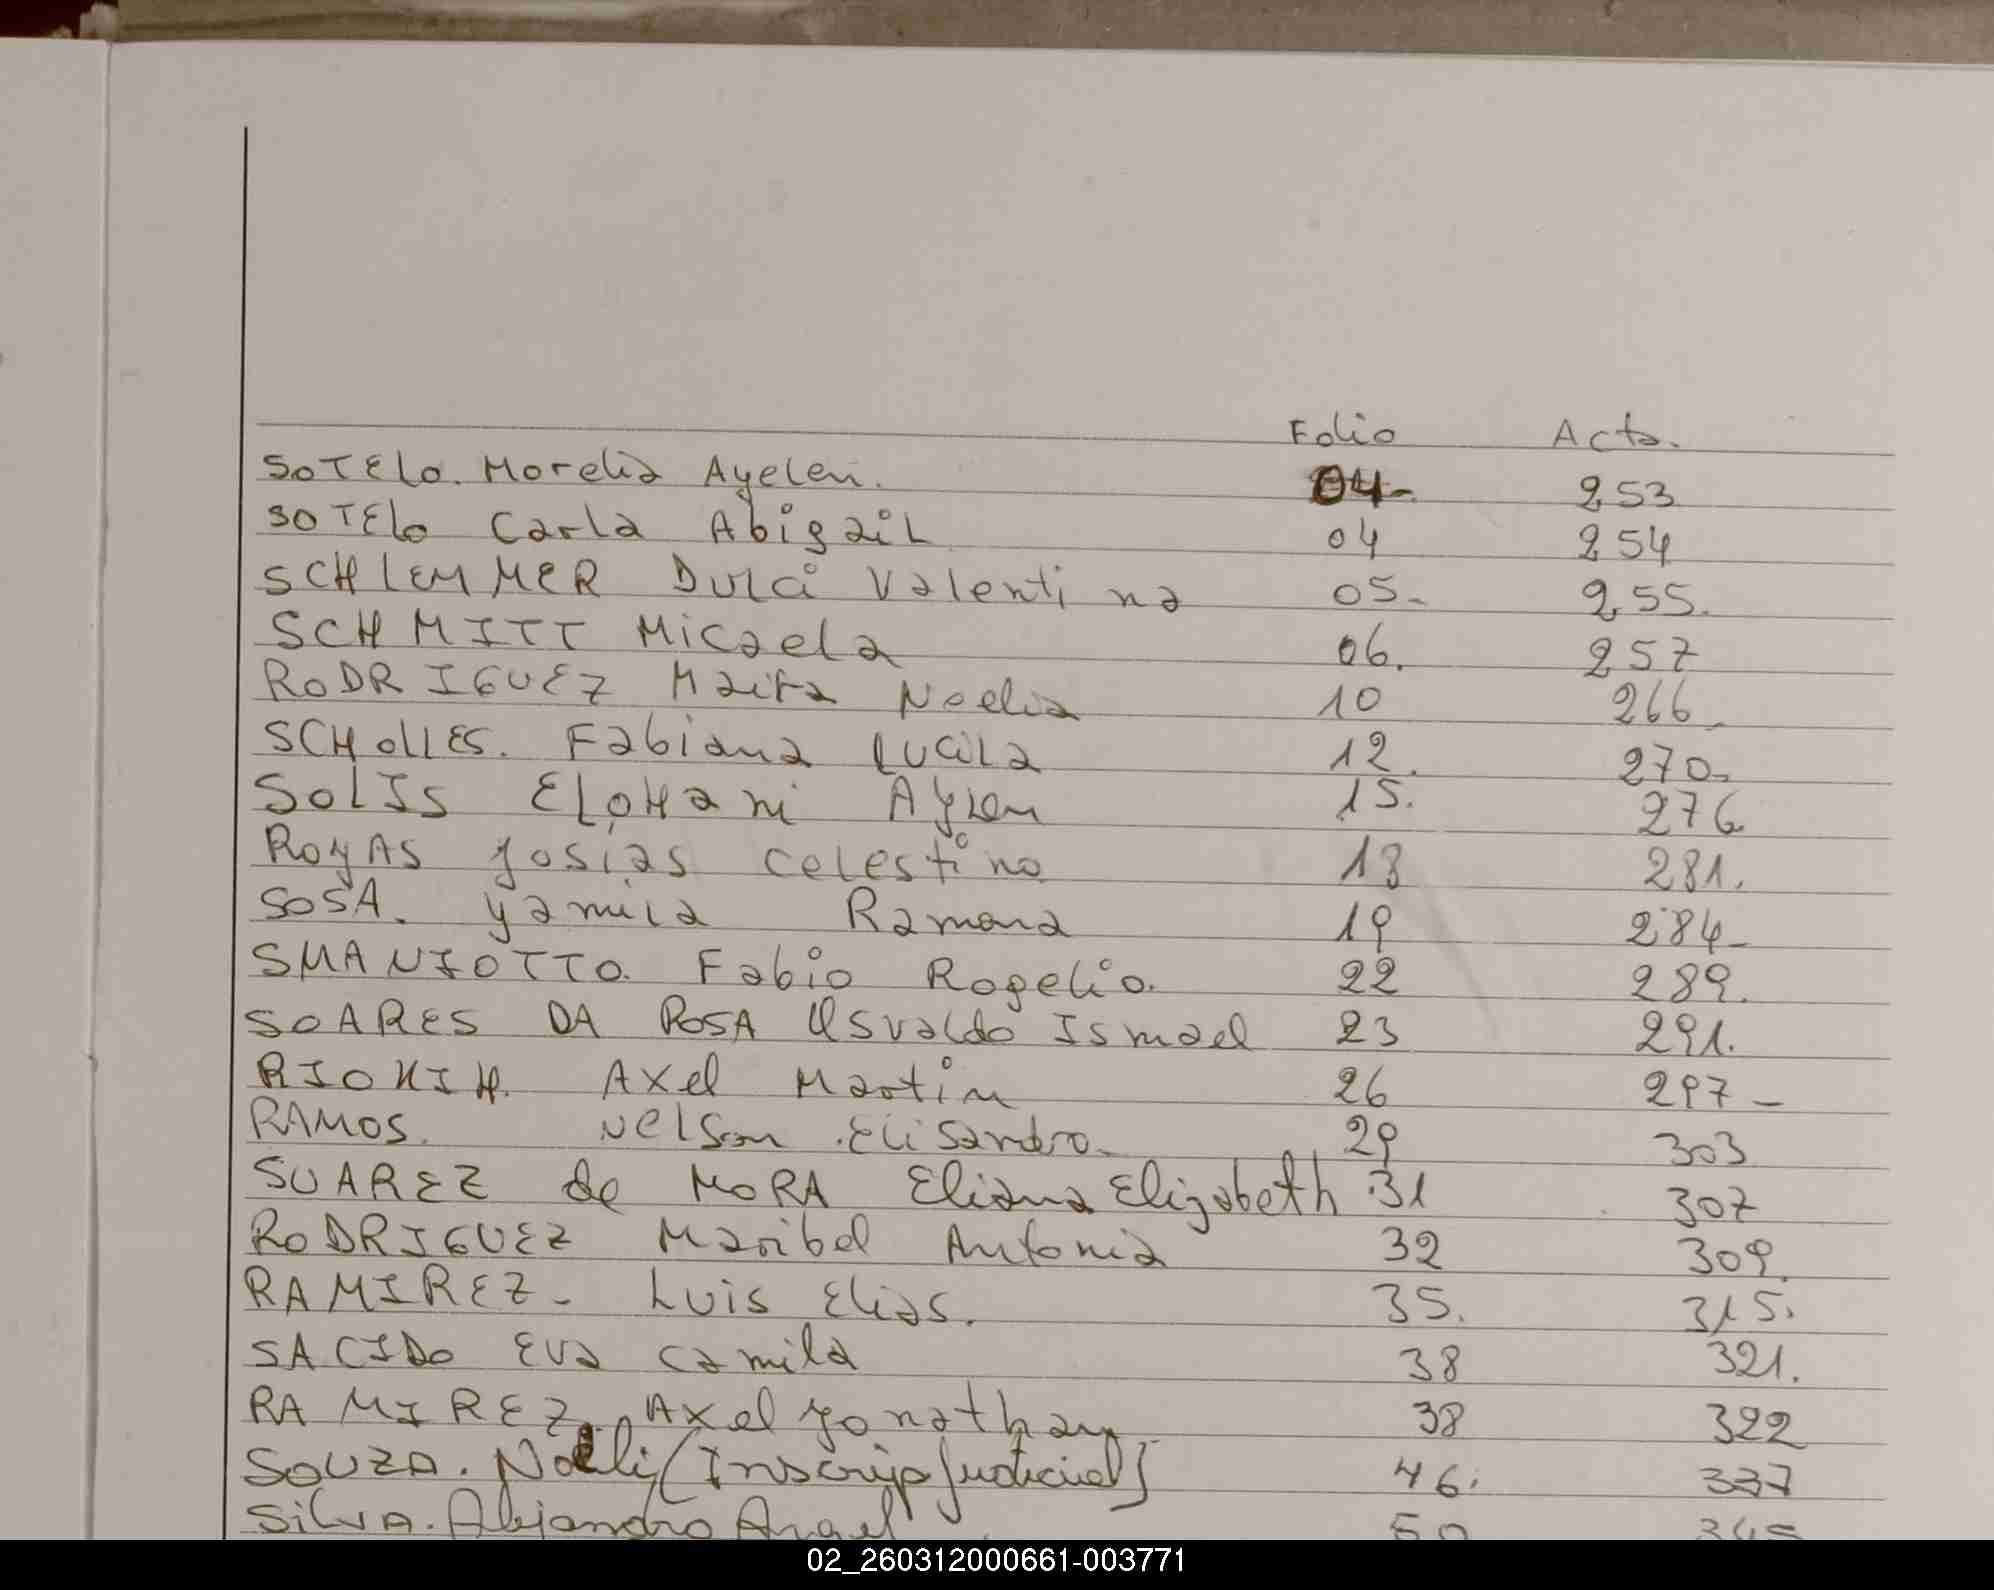 Folio Acta.
SOTElo. Morelia Ayelen. 04- 253
SOTElo Carla Abigail 04 254
SCHLEMMER Dulci Valentina 05- 255.
SCHMITT Micaela 06. 257
RODRIGUEZ Maira Noelia 10 266-
SCHOLLES. Fabiana Lucila 12. 270-
SOLIS ELOHani Aylen 15. 276
ROJAS Josias Celestino 18 281.
SOSA. Yamila Ramona 19 284-
SMANIOTTO. Fabio Rogelio. 22 289.
SOARES DA ROSA Osvaldo Ismael 23 291.
Axel Martin 26 297-
RAMOS. Nelson Elisandro- 29 303
SUAREZ de MORA Eliana Elizabeth 31 307
RODRIGUEZ Maribel Antonia 32 309.
RAMIREZ- Luis Elias. 35. 315.
SACIDO Eva Camila 38 321.
RAMIREZ. Axel Jonathan 38 322
SOUZA. Noeli (Inscrip Judicial) 46. 337
SilVA. Alejandro Angel 50
02_260312000661-003771